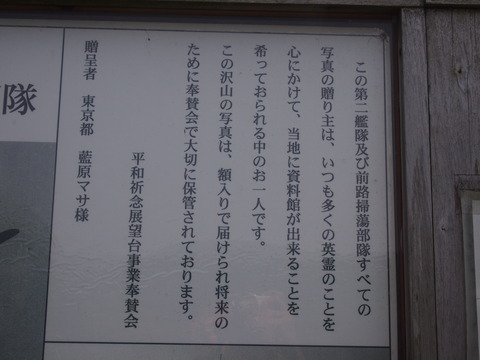 この第二艦隊及び前路掃蕩部隊すべての
写真の贈り主は、いつも多くの英霊のことを
心にかけて、当地に資料館が出来ることを
希っておられる中のお一人です。
この沢山の写真は、額入りで届けられ将来の
ために奉賛会で大切に保管されております。
平和祈念展望台事業奉賛会
贈呈者　東京都　藍原マサ様
隊